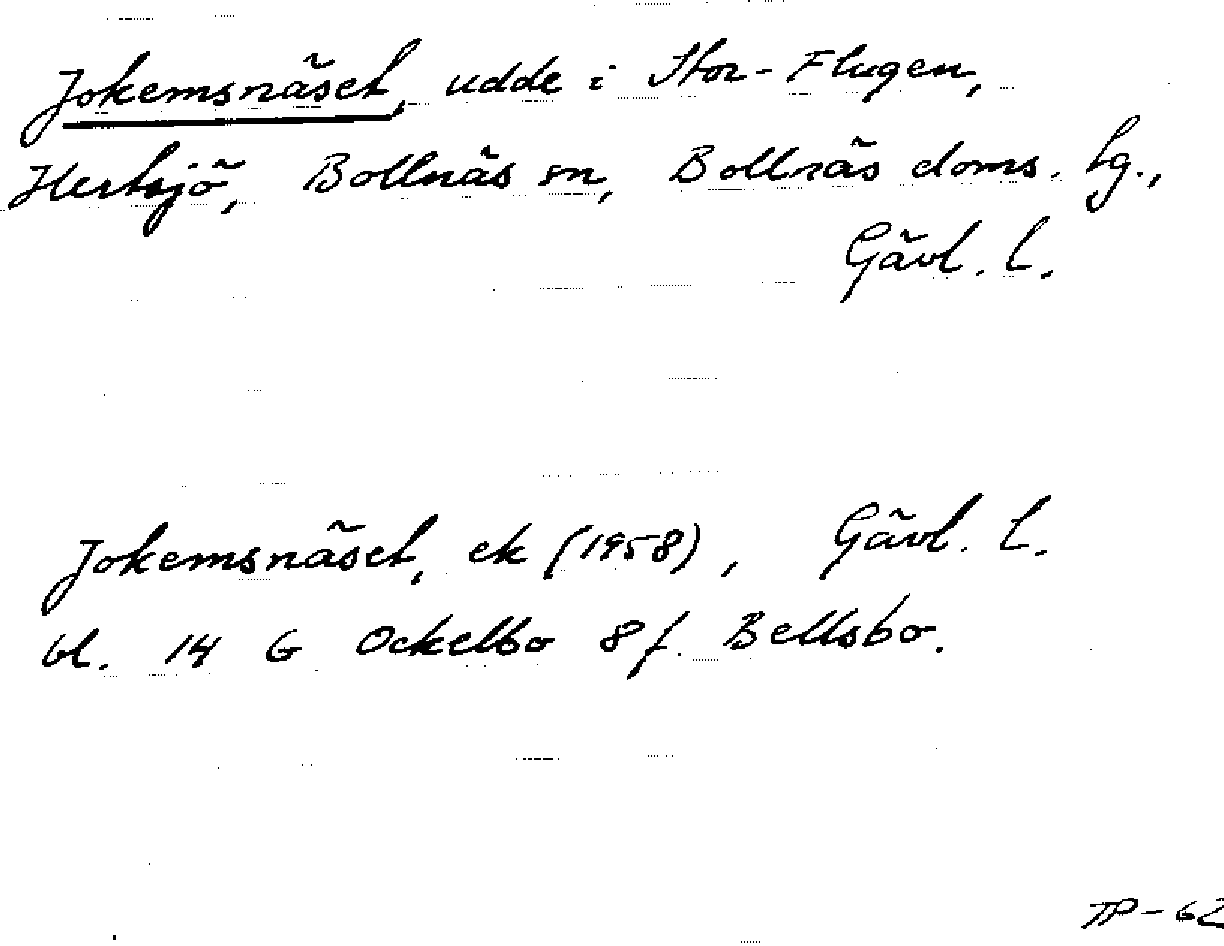 Jokemsnäset, udde i Stor-Flugen,
Hertsjö, Bollnäs sn, Bollnäs doms. tg.,
Gävl. l.
Jokemsnäset, ek (1958), Gävl. l.
bl. 14 G Ockelbo 8f Bellsbo.
TP-62